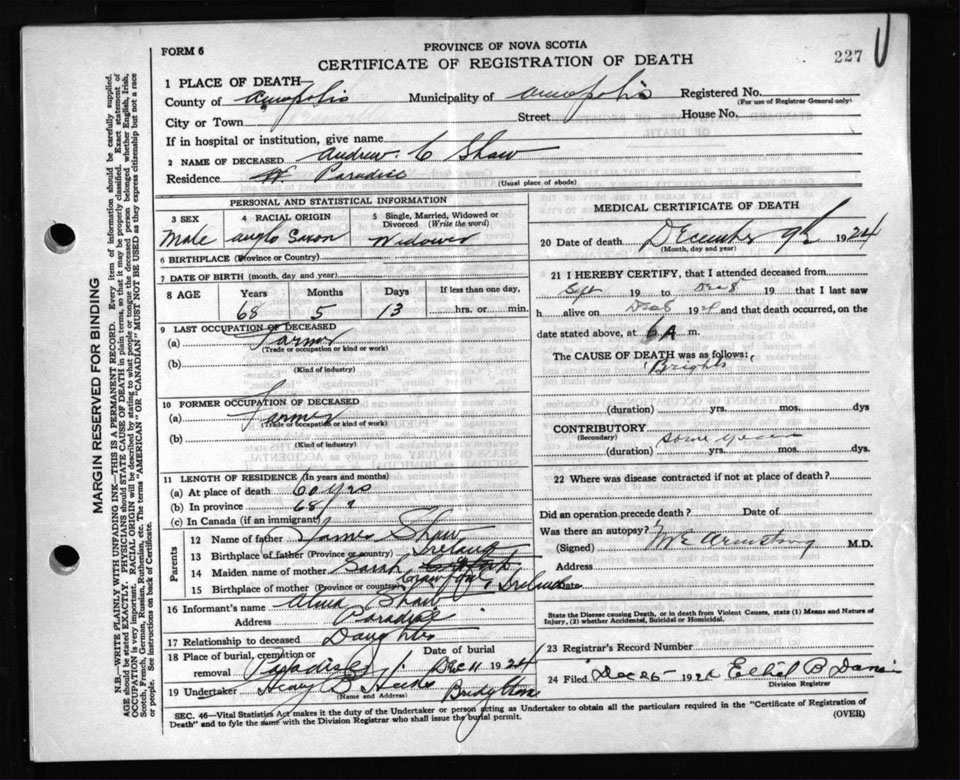 FORM 6
PROVINCE OF NOVA SCOTIA
CERTIFICATE OF REGISTRATION OF DEATH
227
1 PLACE OF DEATH
County of Annapolis Municipality of Annapolis Registered No.
(For use of Registrar General only)
City or Town Street House No.
If in hospital or institution, give name
2 NAME OF DECEASED Andrew C Shaw
Residence Paradise
(Usual place of abode)
PERSONAL AND STATISTICAL INFORMATION
3 SEX 4 RACIAL ORIGIN 5 Single, Married, Widowed or Divorced (Write the word)
Male Anglo Saxon Widower
6 BIRTHPLACE (Province or Country)
7 DATE OF BIRTH (month, day and year)
8 AGE Years Months Days If less than one day,
68 5 13 ....hrs. or ....min.
9 LAST OCCUPATION OF DECEASED
(a) Farmer
(Trade or occupation or kind of work)
(b)
(Kind of industry)
10 FORMER OCCUPATION OF DECEASED
(a) Farmer
(Trade or occupation or kind of work)
(b)
(Kind of industry)
11 LENGTH OF RESIDENCE (In years and months)
(a) At place of death 60 yrs
(b) In province 68
(c) In Canada (if an immigrant)
Parents
12 Name of father James Shaw
13 Birthplace of father (Province or country) Ireland
14 Maiden name of mother Sarah
15 Birthplace of mother (Province or country) Crawford, Ireland
16 Informant's name Alma Shaw
Address Paradise
17 Relationship to deceased Daughter
18 Place of burial, cremation or removal Paradise Date of burial Dec 11 1924
19 Undertaker Bridgetown
(Name and Address)
MEDICAL CERTIFICATE OF DEATH
20 Date of death December 9th 1924
(Month, day and year)
21 I HEREBY CERTIFY, that I attended deceased from
Sept 19 to Dec 8 19 that I last saw
h alive on Dec 8 1924 and that death occurred, on the
date stated above, at 6 A m.
The CAUSE OF DEATH was as follows:
Brights
(duration) yrs. mos. dys
CONTRIBUTORY some years
(Secondary)
(duration) yrs. mos. dys.
22 Where was disease contracted if not at place of death?
Did an operation precede death? Date of
Was there an autopsy?
(Signed) Armstrong M.D.
Address
Date
State the Disease causing Death, or in death from Violent Causes, state (1) Means and Nature of Injury, (2) whether Accidental, Suicidal or Homicidal.
23 Registrar's Record Number
24 Filed Dec 26 1924 Ethel B
Division Registrar
SEC. 46—Vital Statistics Act makes it the duty of the Undertaker or person acting as Undertaker to obtain all the particulars required in the "Certificate of Registration of
Death" and to fyle the same with the Division Registrar who shall issue the burial permit. (OVER)
MARGIN RESERVED FOR BINDING
N.B.—WRITE PLAINLY WITH UNFADING INK—THIS IS A PERMANENT RECORD. Every item of information should be carefully supplied.
AGE should be stated EXACTLY. PHYSICIANS should STATE CAUSE OF DEATH in plain terms, so that it may be properly classified. Exact statement of
OCCUPATION is very important. RACIAL ORIGIN will be described by stating to what people tongue the deceased person belonged whether English, Irish,
Scotch, French, German, Russian, Ruthenian, etc. The terms "AMERICAN" OR "CANADIAN" MUST NOT BE USED as they express citizenship but not a race
or people. See instructions on back of Certificate.